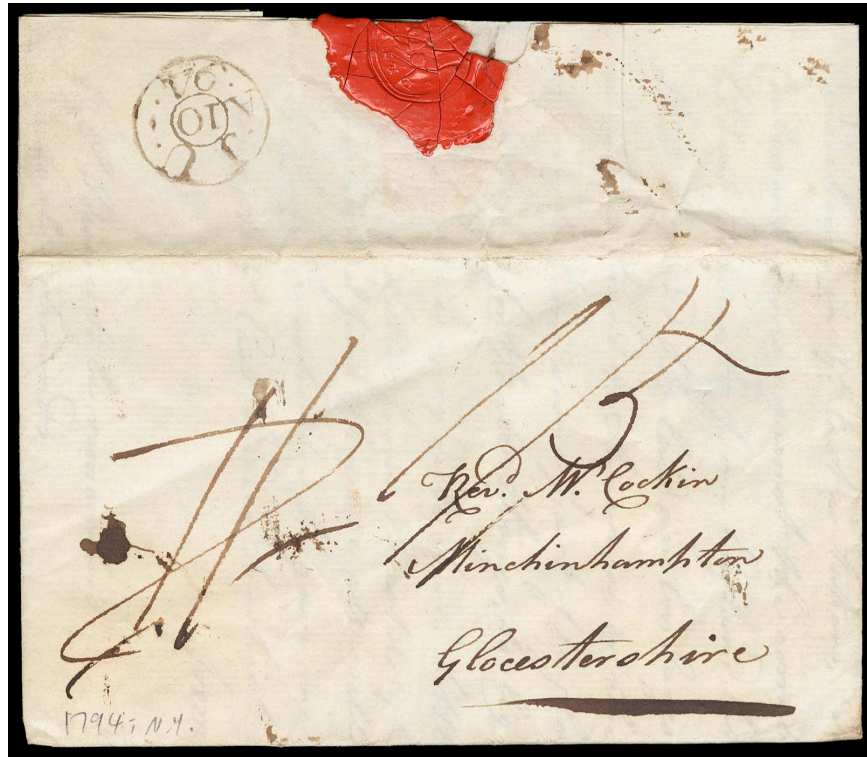 10
Rev.d Mr. Cockin
Minchinhampton
Glocestershire
1794; N.Y.